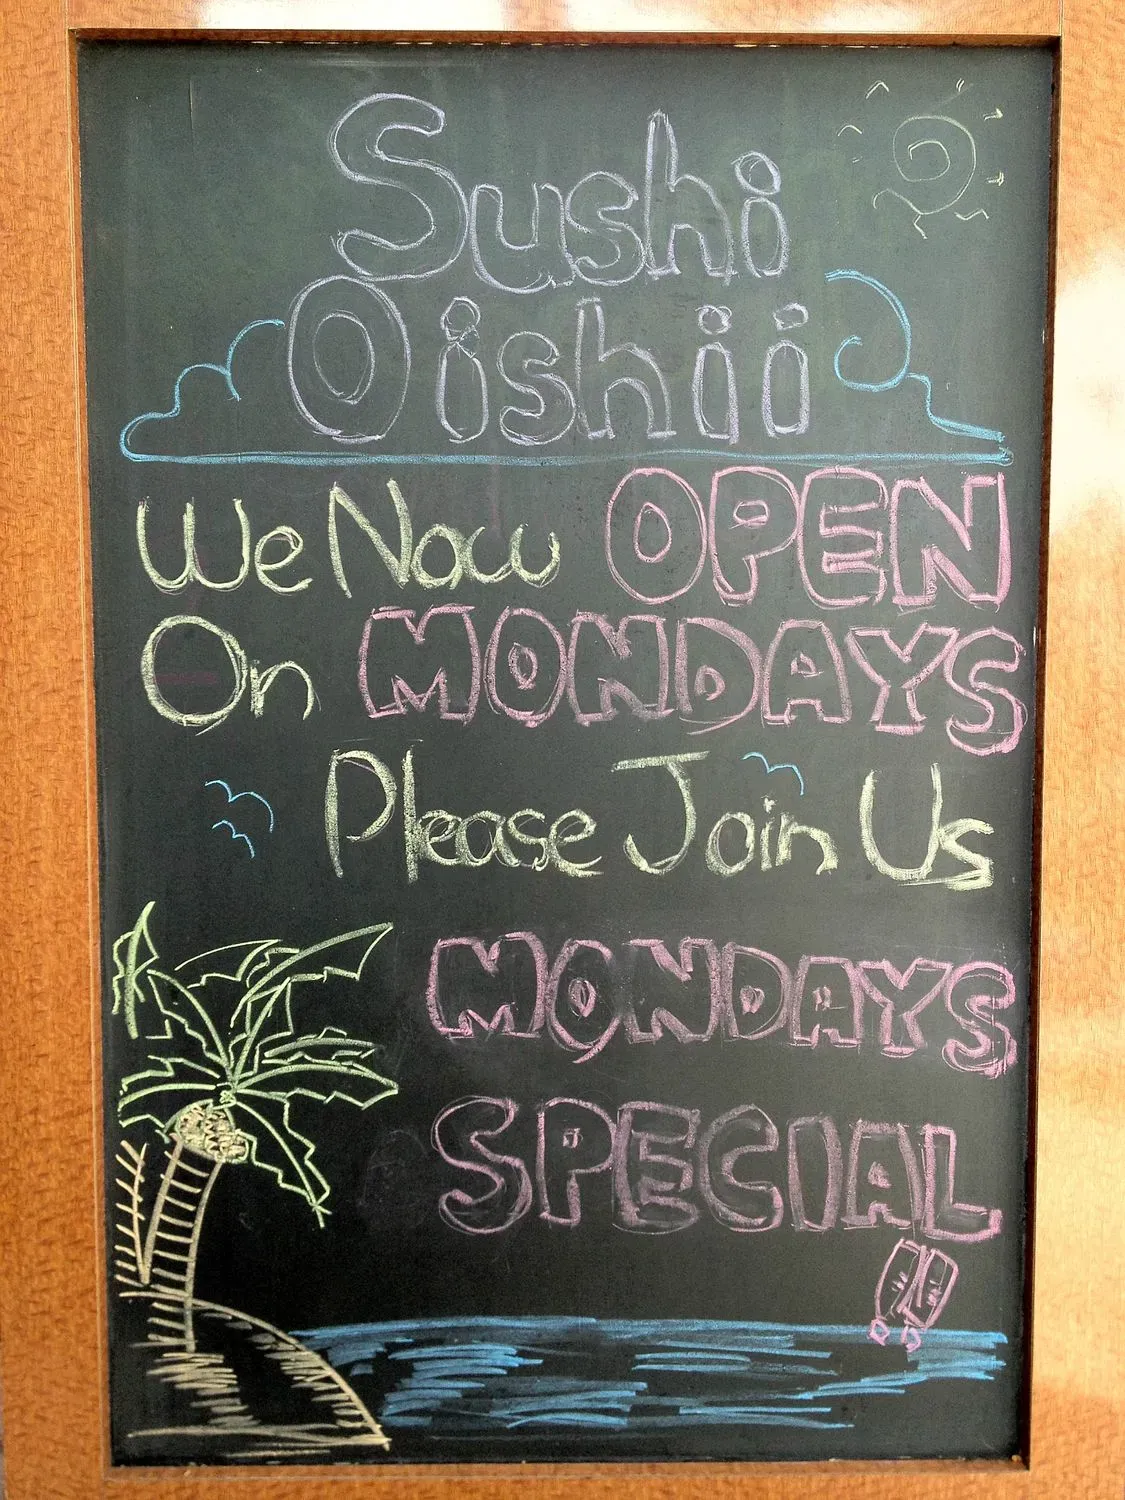 Sushi
Oishii
We Now OPEN
On MONDAYS
Please Join Us
MONDAYS
SPECIAL
!!